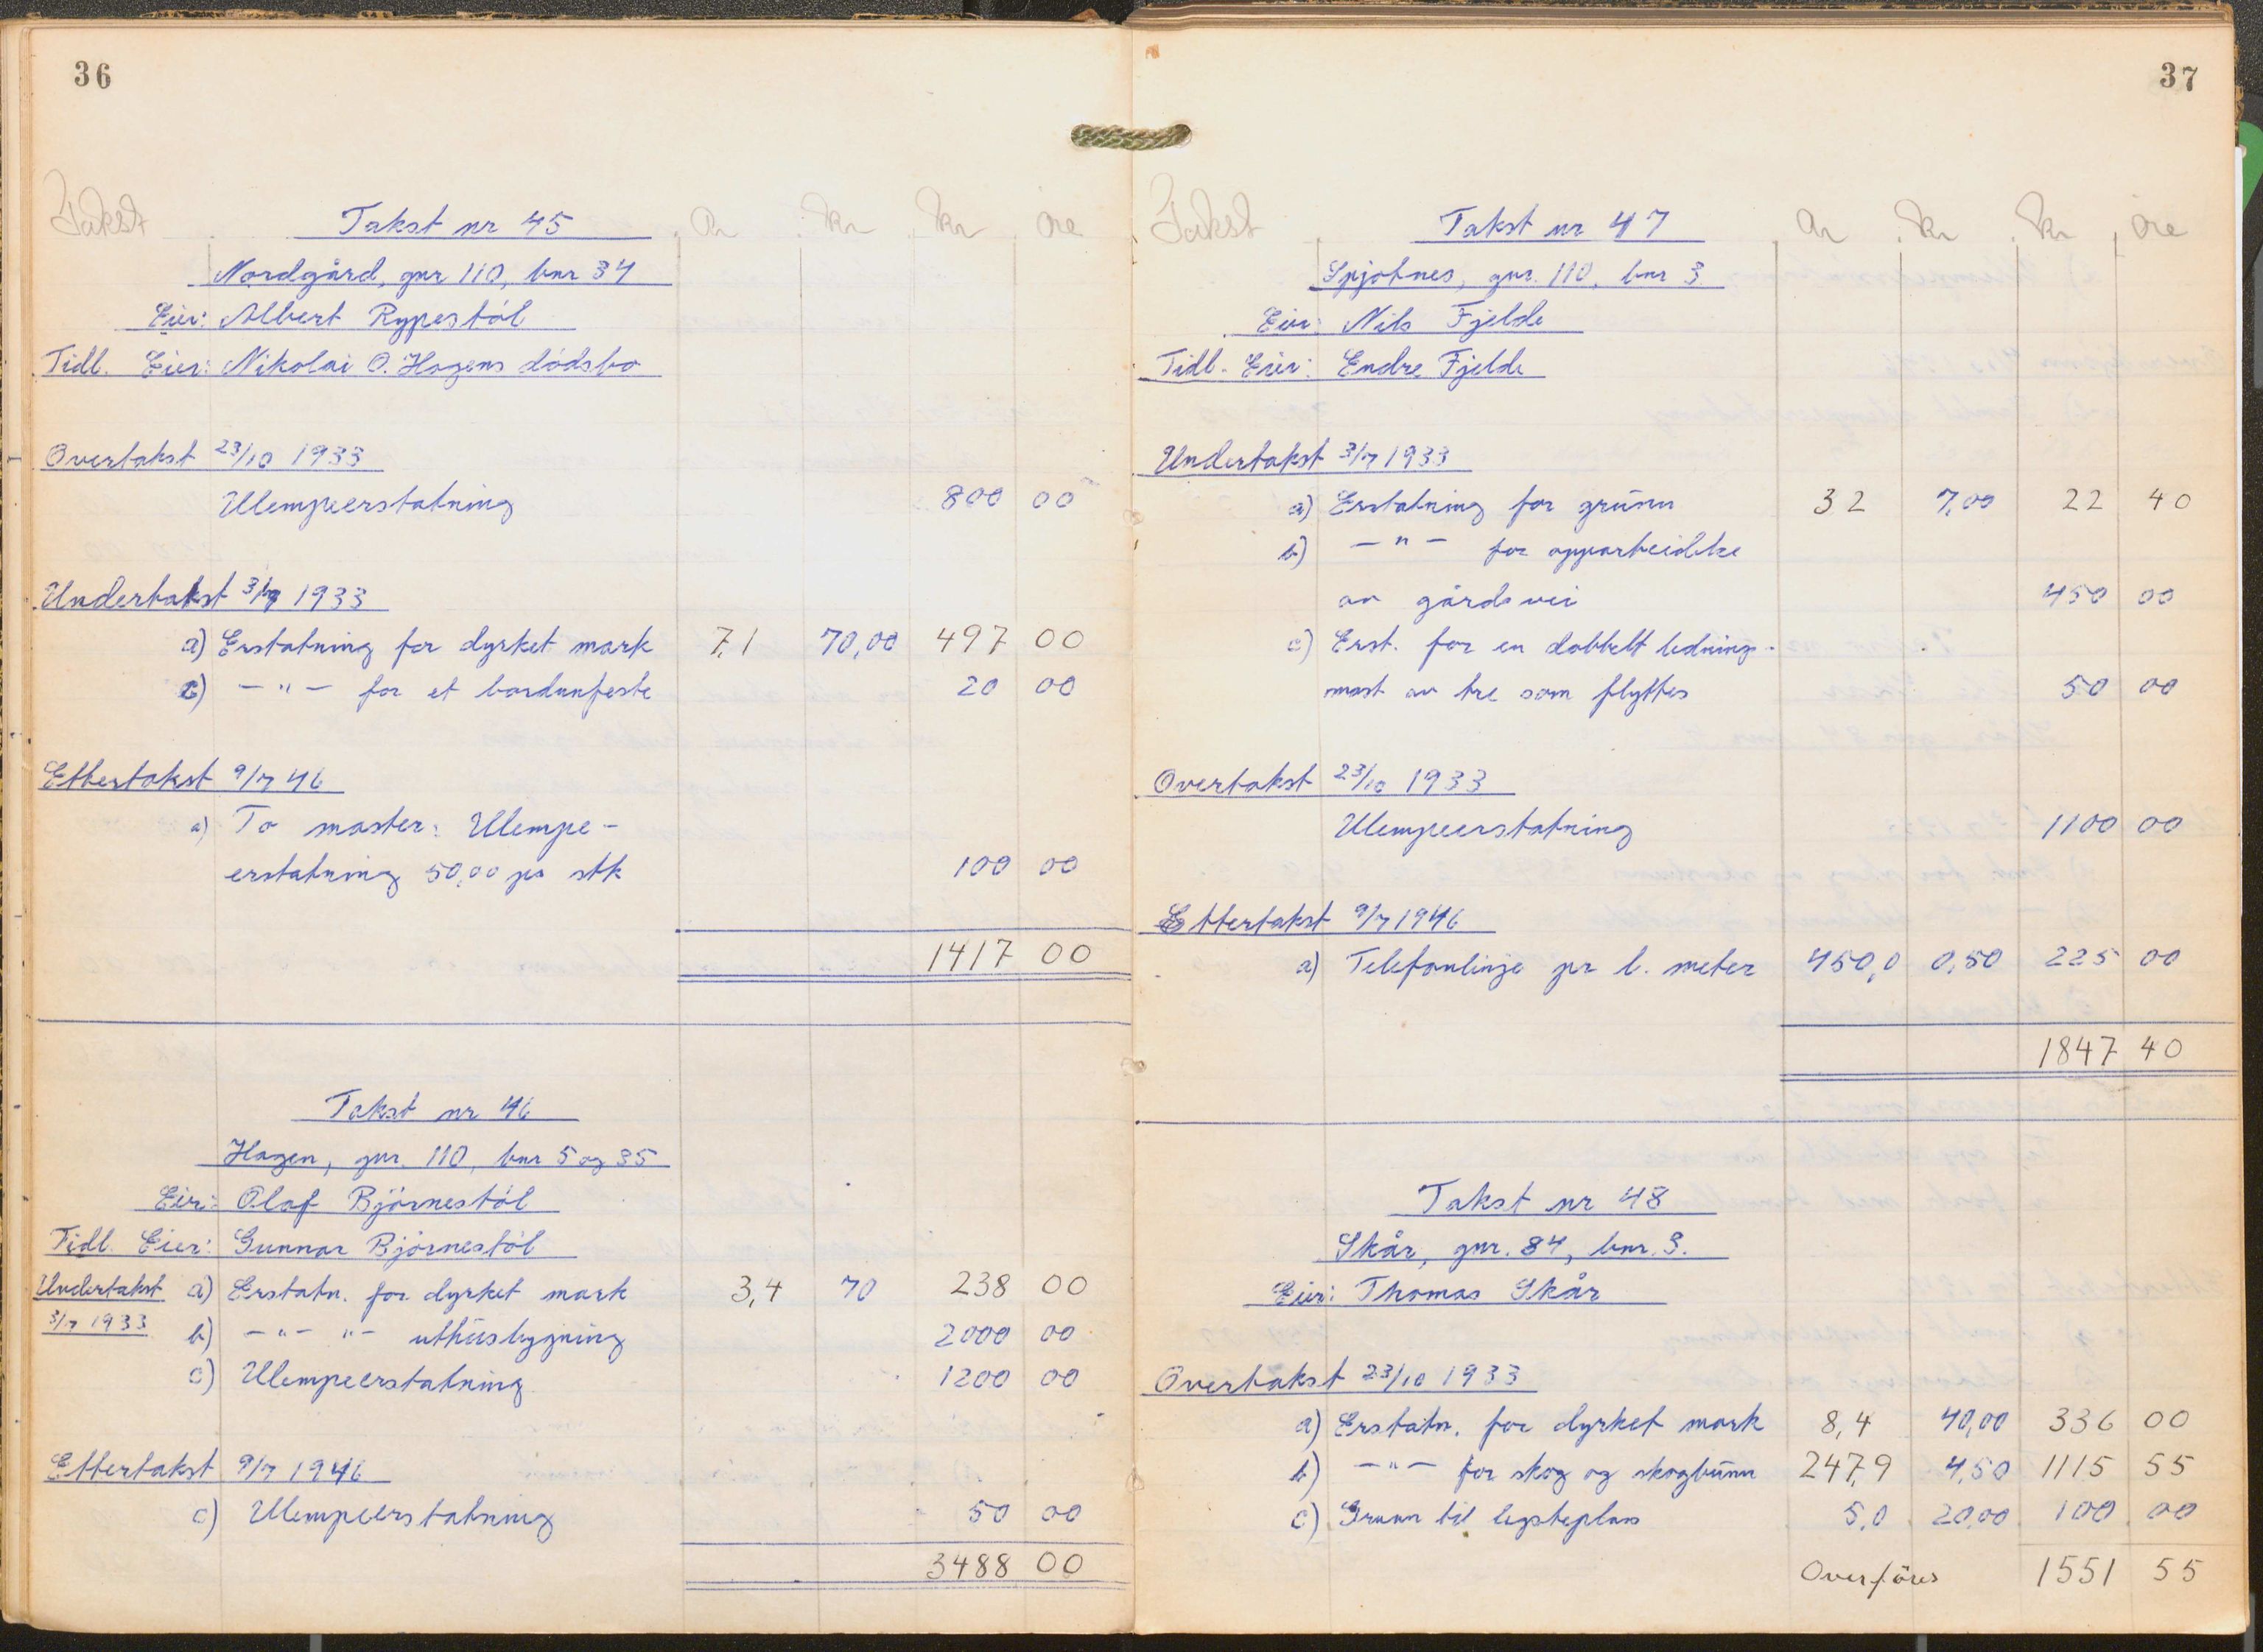 36
Takst Ar kr kr øre
Takst nr 45
Nordgård, gnr 110, bnr 34
Eier: Albert Rypestöl
Tidl. Eier: Nikolai O. Hagens dödsbo
Overtakst 23/10 1933
Ulempeerstatning 800 00
Undertakst 3/7 1933
a) Erstatning for dyrket mark 7,1 70,00 497 00
c) - " - for et bardunfeste 20 00
Ettertakst 9/7 46
a) To master: Ulempe-
erstatning 50,00 pr stk 100 00
1417 00
Takst nr 46
Hagen, gnr. 110, bnr 5 og 35
Eier: Olaf Björnestöl
Tidl. Eier: Gunnar Björnestöl
Undertakst a) Erstatn. for dyrket mark 3,4 70 238 00
3/7 1933 b) - " - " - uthusbygning 2000 00
c) Ulempeerstatning 1200 00
Ettertakst 9/7 1946
c) Ulempeerstatning 50 00
3488 00
37
Takst Ar kr kr øre
Takst nr 47
Spjotnes, gnr. 110, bnr 3
Eier: Nils Fjelde
Tidl. Eier: Endre Fjelde
Undertakst 3/7 1933
a) Erstatning for grunn 32 7,00 22 40
b) - " - for opparbeidelse
av gårdsvei 450 00
c) Erst. for en dobbelt lednings-
mast av tre som flyttes 50 00
Overtakst 23/10 1933
Ulempeerstatning 1100 00
Ettertakst 9/7 1946
a) Telefonlinje pr l. meter 450,0 0,50 225 00
1847 40
Takst nr 48
Skår, gnr. 84, bnr. 3.
Eier: Thomas Skår
Overtakst 23/10 1933
a) Erstatn. for dyrket mark 8,4 40,00 336 00
b) - " - for skog og skogbunn 247,9 4,50 1115 55
c) Grunn til legsteplass 5,0 20,00 100 00
Overføres 1551 55